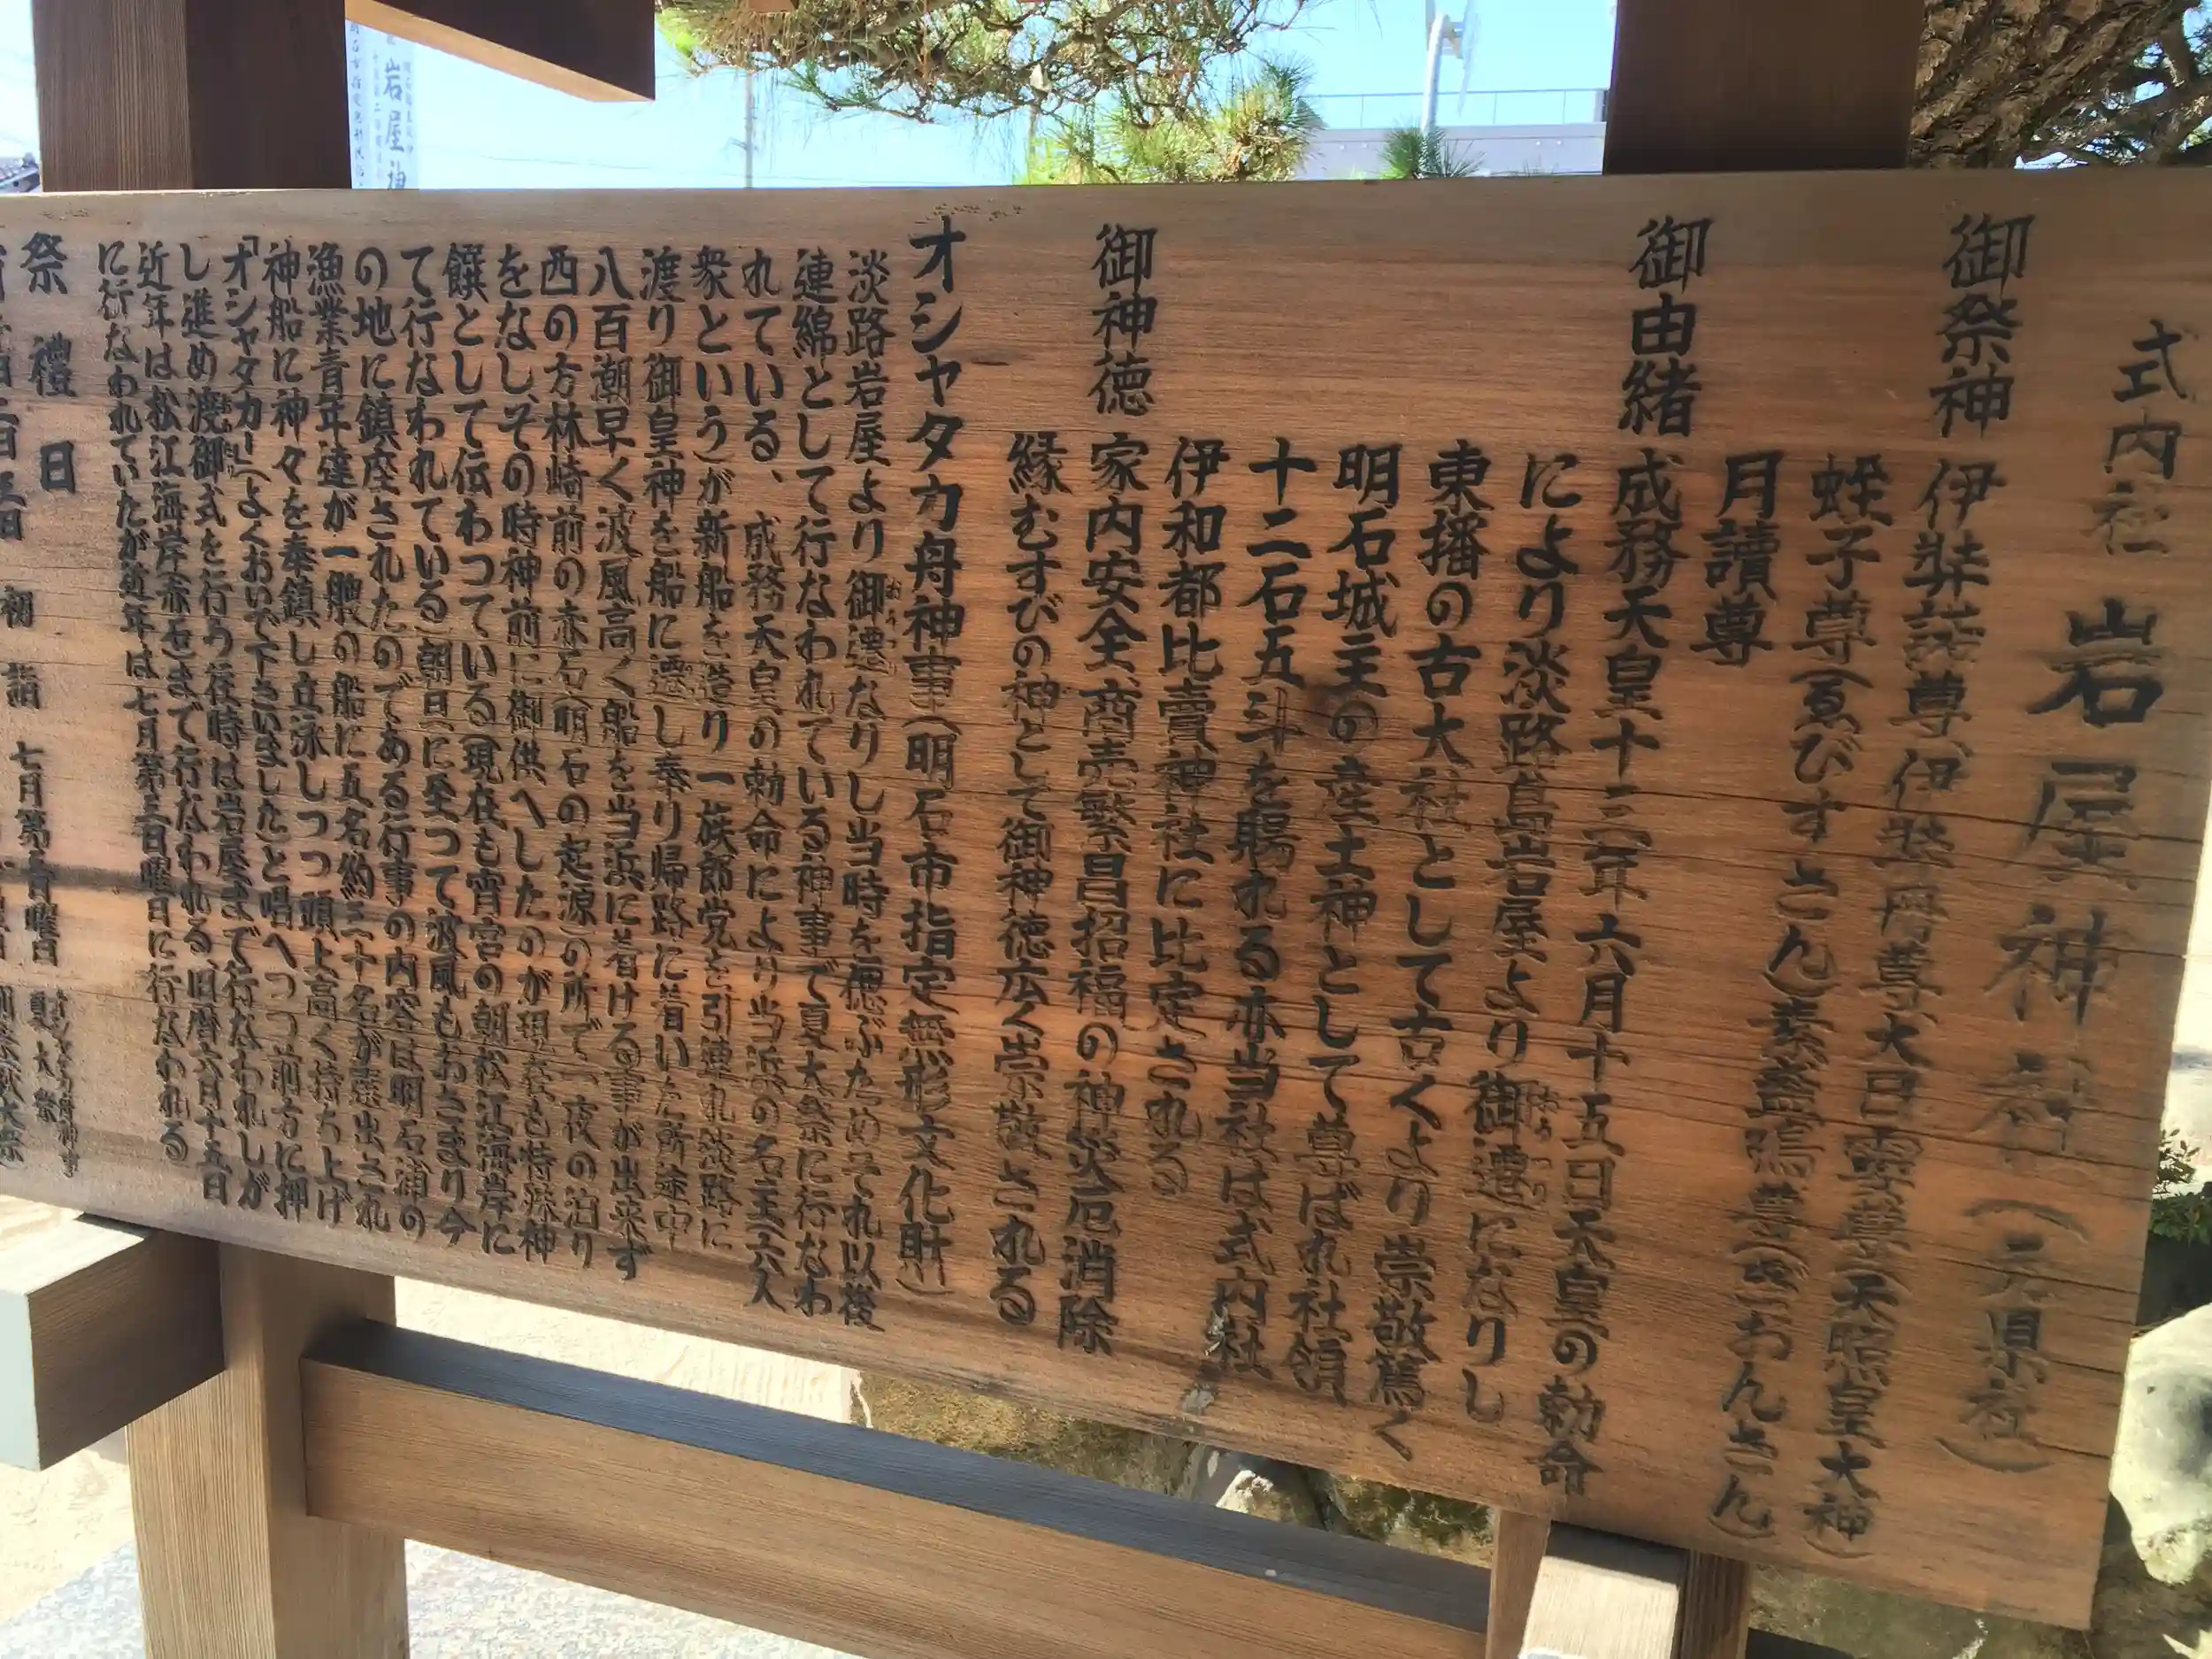 式内社 岩屋神社(元県社)
御祭神 伊弉諾尊、伊弉冊尊、大日霊尊(天照皇大神)
蛭子尊(ゑびすさん)素盞嗚尊(ぎおんさん)
月讀尊
御由緒 成務天皇十三年六月十五日天皇の勅命
により淡路島岩屋より御遷になりし
東播の古大社として古くより崇敬篤く
明石城主の産土神として尊ばれ社領
十二石五斗を賜れる亦当社は式内社
伊和都比賣神社に比定される
御神徳 家内安全、商売繁昌招福の神災厄消除
縁むすびの神として御神徳広く崇敬される
オシャタカ舟神事(明石市指定無形文化財)
淡路岩屋より御遷なりし当時を偲ぶためそれ以後
連綿として行なわれている神事で夏大祭に行なわ
れている、成務天皇の勅命により当浜の名主六人
衆という)が新船を造り一族郎党を引連れ淡路に
渡り御皇神を船に遷し奉り帰路に着いた所途中
八百潮早く波風高く船を当浜に着ける事が出来ず
西の方林崎前の赤石(明石の起源)の所で一夜の泊り
をなし、その時神前に御供へしたのが現在も特殊神
饌として伝わつている(現在も宵宮の朝松江海岸に
て行なわれている)朝日に至つて波風もおさまり今
の地に鎮座されたのである行事の内容は明石浦の
漁業青年達が一艘の船に五名約三十名が選出され
神船に神々を奉鎮し立泳しつつ頭上高く持ち上げ
「オシャタカー」(よくおいで下さいましたと唱へつつ前方に押
し進め渡御式を行う往時は岩屋まで行なわれしが
近年は松江海岸(赤石)まで行なわれる旧暦六月十五日
に行なわれていたが近年は七月第三日曜日に行なわれる
祭禮日 七月第三日曜日 オシャタカ舟神事 夏大祭
初詣